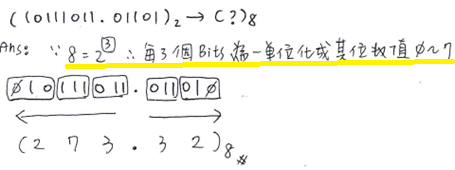 (10111011.01101)₂ → (?)₈
Ans: ∵ 8 = 2³ ∴ 每3個Bits為一單位化成其位权值 0~7
010 111 011 . 011 010
(2 7 3 . 3 2)₈ #